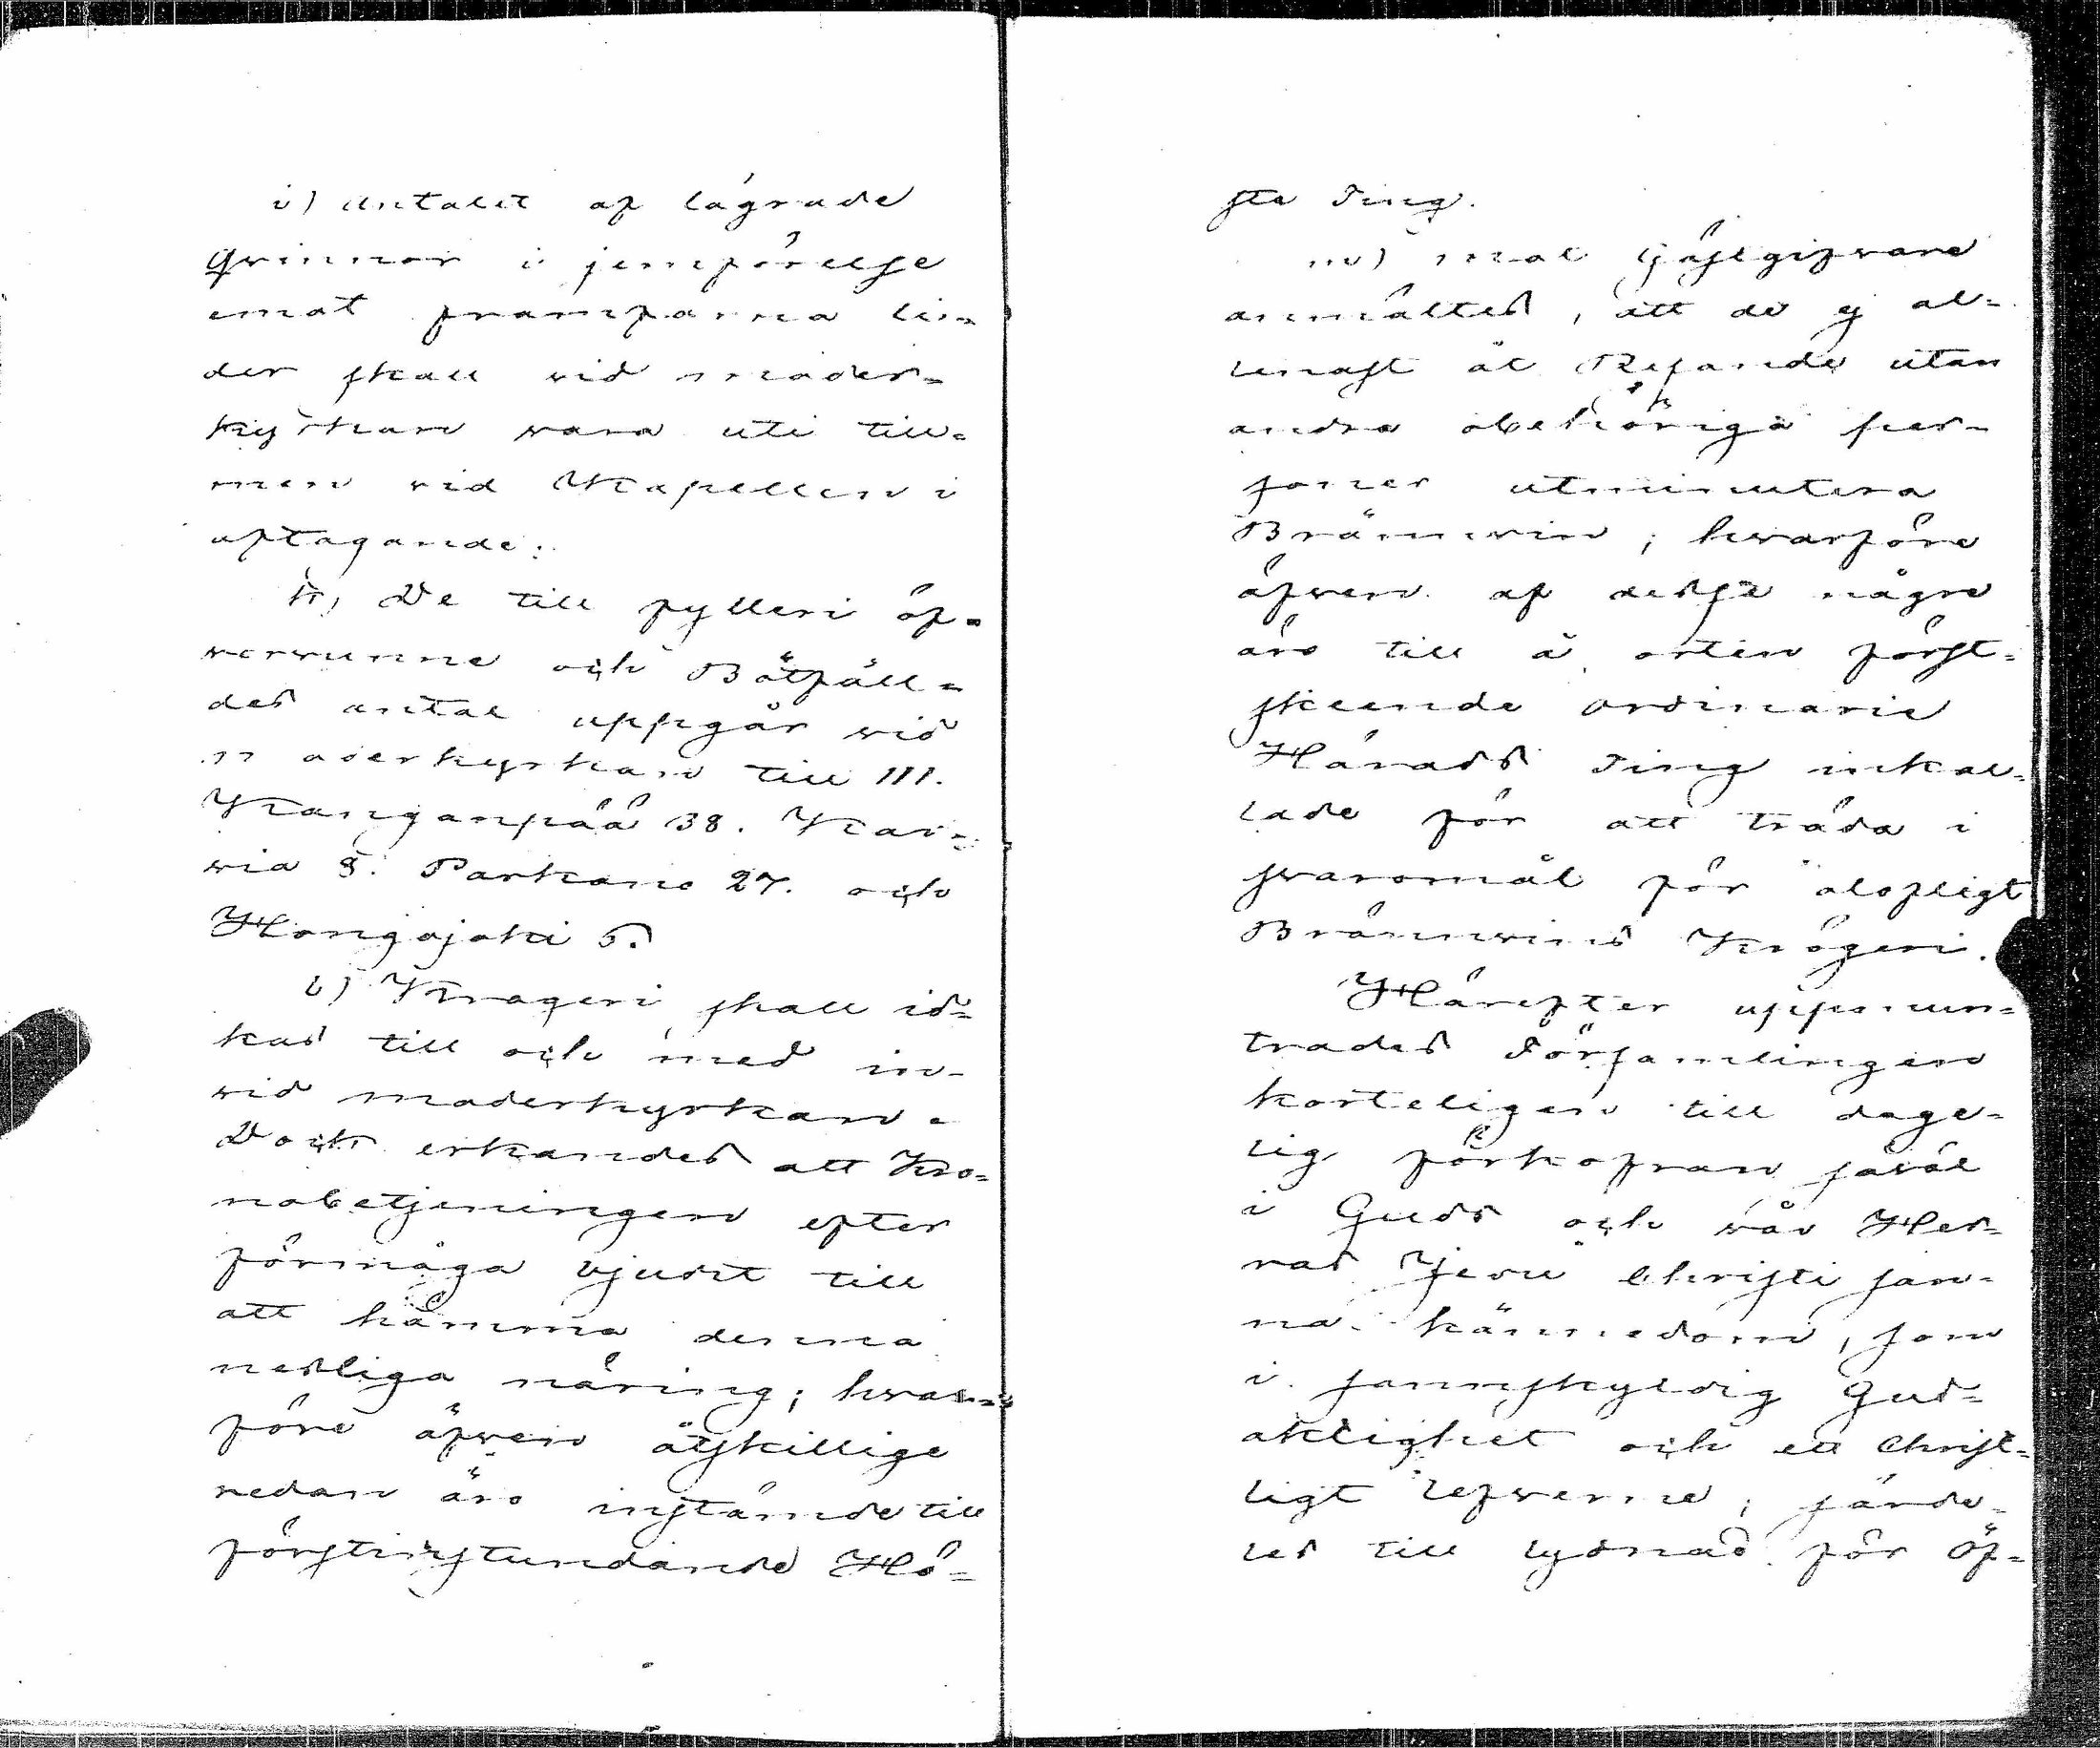 i) Antalet af lägrade
Qvinnor i jemförelse
emot framfarna ti-
der skall vid moder-
kyrkan vara uti till-
men vid Kapellen i
aftagande.
k, De till fylleri öf-
vervunne och Bötfäll-
des antal uppgår vid
moderkyrkan till 111.
Kanganpää 38. Kar-
via 8. Parkano 27. och
Hongojoki 5.
l) Krögeri skall id-
kas till och med in-
vid moderkyrkan.
Dock erkändes att Kro-
nobetjeningen efter
förmåga bjudit till
att hämma denna
nesliga näring; hvar-
före äfven åtskillige
redan äro instämde till
förstinstundande Hö-
ste Ting.
m) mot Gästgifvare
anmältes, att de ej al-
lenast åt Resande utan
andra obehöriga per-
soner utminutera
Brännvin; hvarföre
äfven af desse någre
äro till å orten först-
skeende ordinarie
Härads Ting inkal-
lade för att träda i
svaromål för olofligt
Brännvins Krögeri.
Härefter uppmun-
trades Församlingen
korteligen till dage-
lig förkofran såväl
i Guds och vår Her-
ras Jesu Christi san-
na kännedom, som
i sannskyldig Gud-
aktighet och ett Christ-
ligt lefverne, särde-
les till lydnad för Öf-